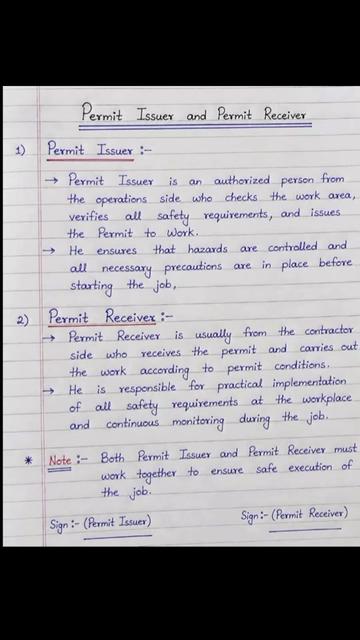 Permit Issuer and Permit Receiver
1) Permit Issuer :-
→ Permit Issuer is an authorized person from
the operations side who checks the work area,
verifies all safety requirements, and issues
the Permit to Work.
→ He ensures that hazards are controlled and
all necessary precautions are in place before
starting the job,
2) Permit Receiver :-
→ Permit Receiver is usually from the contractor
side who receives the permit and carries out
the work according to permit conditions.
→ He is responsible for practical implementation
of all safety requirements at the workplace
and continuous monitoring during the job.
* Note :- Both Permit Issuer and Permit Receiver must
work together to ensure safe execution of
the job.
Sign :- (Permit Issuer) Sign :- (Permit Receiver)